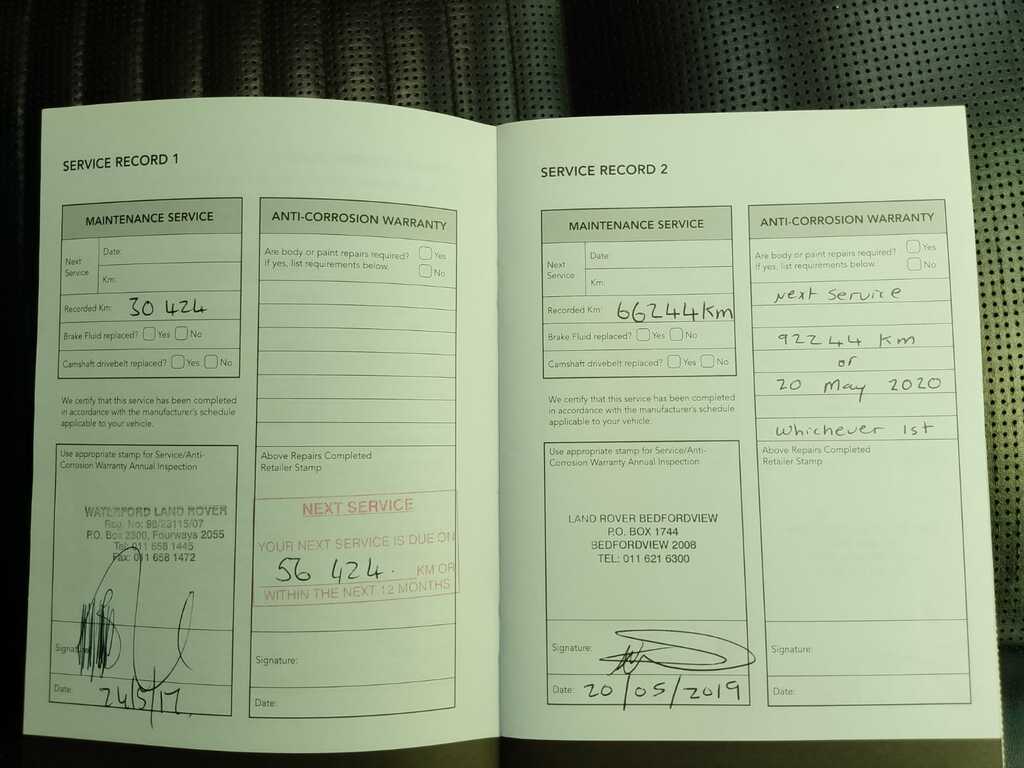 SERVICE RECORD 1
MAINTENANCE SERVICE
Next
Service
Date:
Km:
Recorded Km: 30 424
Brake Fluid replaced? Yes No
Camshaft drivebelt replaced? Yes No
We certify that this service has been completed
in accordance with the manufacturer's schedule
applicable to your vehicle.
Use appropriate stamp for Service/Anti-
Corrosion Warranty Annual Inspection
WATERFORD LAND ROVER
Reg. No: 98/23115/07
P.O. Box 2300, Fourways 2055
Tel: 011 658 1445
Fax: 011 658 1472
Signature:
Date: 24/5/17
ANTI-CORROSION WARRANTY
Are body or paint repairs required? Yes
If yes, list requirements below. No
Above Repairs Completed
Retailer Stamp
NEXT SERVICE
YOUR NEXT SERVICE IS DUE ON
56 424. KM OR
WITHIN THE NEXT 12 MONTHS
Signature:
Date:
SERVICE RECORD 2
MAINTENANCE SERVICE
Next
Service
Date:
Km:
Recorded Km: 66244km
Brake Fluid replaced? Yes No
Camshaft drivebelt replaced? Yes No
We certify that this service has been completed
in accordance with the manufacturer's schedule
applicable to your vehicle.
Use appropriate stamp for Service/Anti-
Corrosion Warranty Annual Inspection
LAND ROVER BEDFORDVIEW
P.O. BOX 1744
BEDFORDVIEW 2008
TEL: 011 621 6300
Signature:
Date: 20/05/2019
ANTI-CORROSION WARRANTY
Are body or paint repairs required? Yes
If yes, list requirements below. No
Next Service
92244 Km
or
20 May 2020
Whichever 1st
Above Repairs Completed
Retailer Stamp
Signature:
Date: